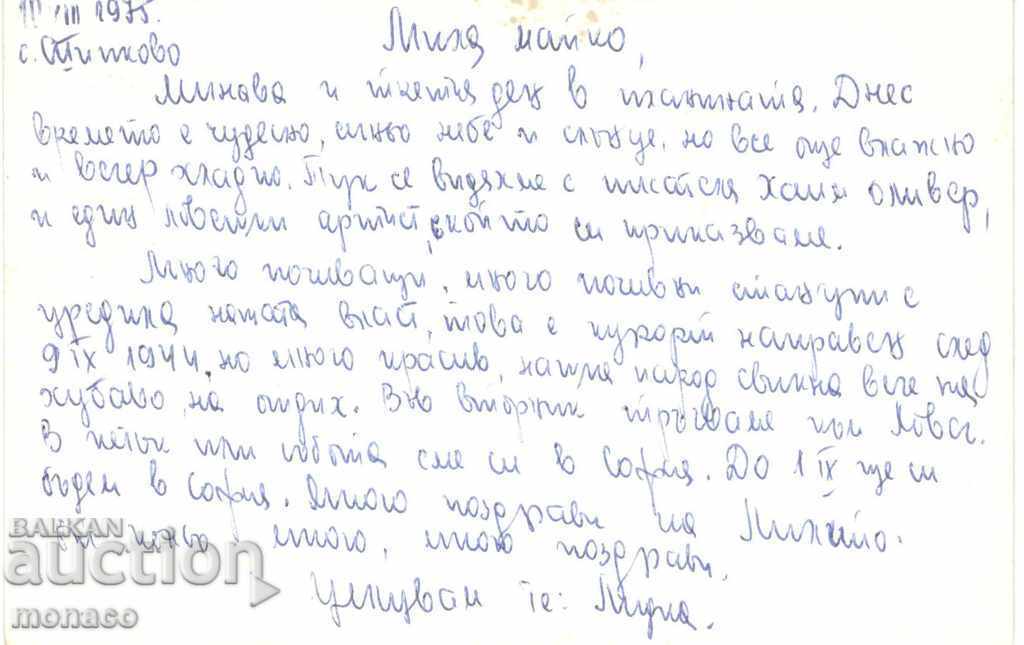 III 1975.
с. Шипково
Мила майко,
Минава и третия ден в планината. Днес
времето е чудесно, синьо небе и слънце, но все още влажно
и вечер хладно. Тук се видяхме с писателя Хаим Оливер,
и един ловешки артист, с който си приказваме.
Много почиващи, много почивни станции е
уредила нашата власт, това е курорт направен след
9 IX 1944, но много красив, нашия народ свикна вече на
хубаво, на отдих. Във вторник тръгваме към Ловеч.
В петък или събота сме си в София. До 1 IX ще си
бъдем в София. Много поздрави на
много, много поздрави.
Целувам те: Лидия.
BALKAN
auction
monaco